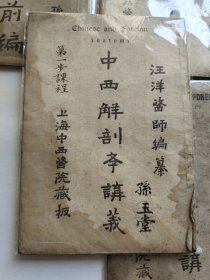 Chinese and Foreign
Anatomy
汪洋醫師編纂
孫玉堂
中西解剖學講義
第一步課程
上海中西醫院藏板
前編